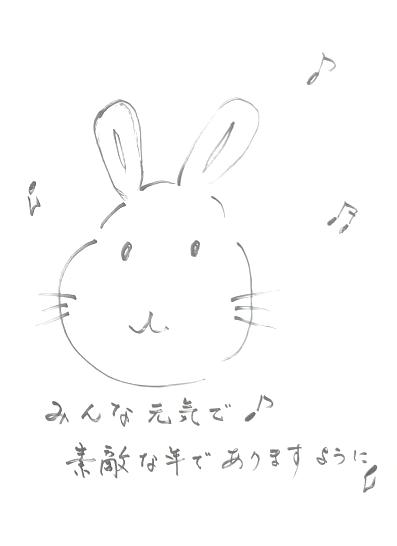 みんな元気で♪
素敵な年でありますように